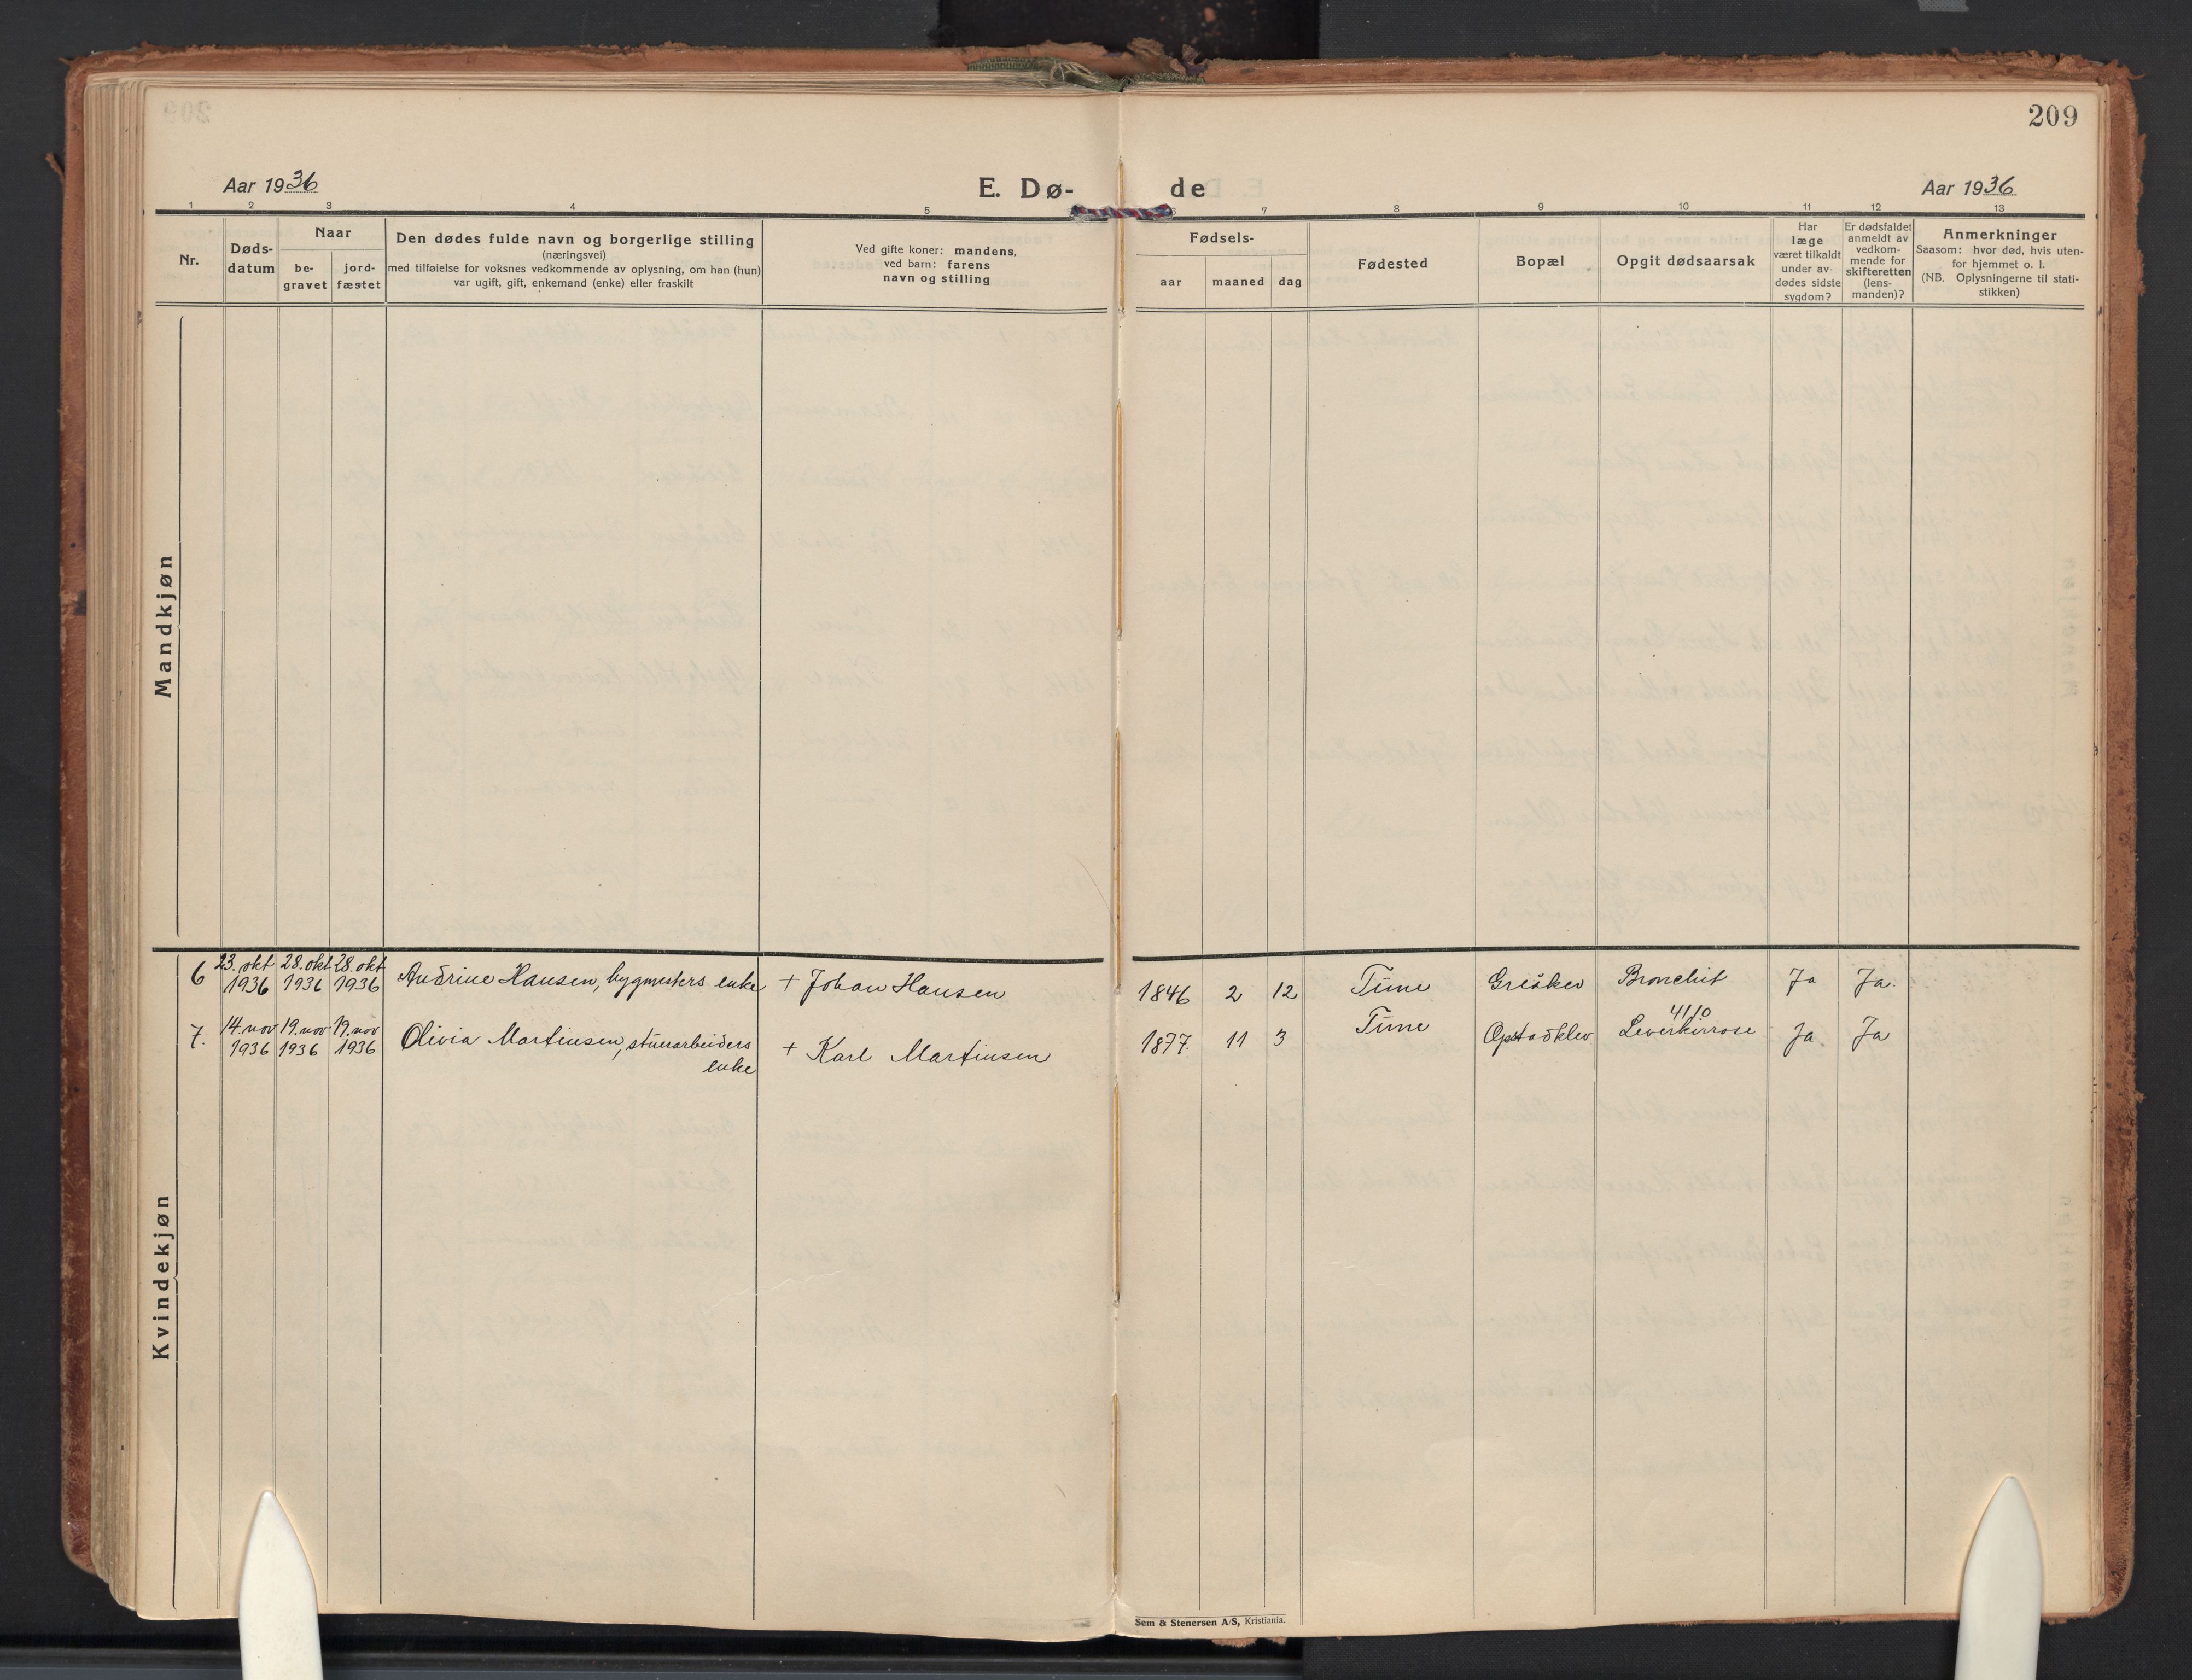 209
Aar 1936
E. Dø-
de
Aar 1936
1 2 3 4 5 6 7 8 9 10 11 12 13
Nr.
Døds-
datum
Naar
be-
gravet
jord-
fæstet
Den dødes fulde navn og borgerlige stilling
(næringsvei)
med tilføielse for voksnes vedkommende av oplysning, om han (hun)
var ugift, gift, enkemand (enke) eller fraskilt
Ved gifte koner: mandens,
ved barn: farens
navn og stilling
Fødsels-
aar maaned dag
Fødested
Bopæl
Opgit dødsaarsak
Har
læge
været tilkaldt
under av-
dødes sidste
sygdom?
Er dødsfaldet
anmeldt av
vedkom-
mende for
skifteretten
(lens-
manden)?
Anmerkninger
Saasom: hvor død, hvis uten-
for hjemmet o. l.
(NB. Oplysningerne til stati-
stikken)
Mandkjøn
Kvindekjøn
6 23. okt 1936 28. okt 1936 28. okt 1936 Andrine Hansen, bygmesters enke + Johan Hansen 1846 2 12 Tune Greåker Bronchit Ja Ja.
7. 14. nov 1936 19. nov 1936 19. nov 1936 Olivia Martinsen, stuerarbeiders
enke
+ Karl Martinsen 1877. 11 3 Tune Opstadklev 41/0
Leverkirrose Ja. Ja
Sem & Stenersen A/S, Kristiania.